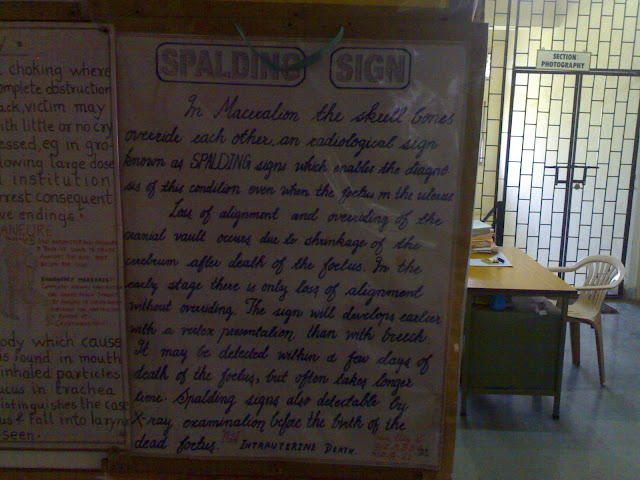 choking where
omplete obstruction
ack, victim may
ith little or no cry
essed, eg in gro-
lowing large dose
l institution
rrest consequent
ve endings.
ANEUERE
ody which cause
is found in mouth
inhaled particles
ucus in trachea
istinguishes the case
us & fall into larynx
seen.
SPALDING SIGN
In Maceralion the skull bones
override each other, an radiological sign
known as SPALDING signs which enables the diagno-
sis of this condition even when the foetus in the uterus.
Loss of alignment and overiding of the
cranial vault occurs due to shrinkage of the
cerebrum after death of the foetus. In the
early stage there is only loss of alignment
without overiding. The sign will develops earlier
with a vertex presentation than with breech.
It may be detected within a few days of
death of the foetus, but often takes longer
time. Spalding signs also detectable by
X-ray examination before the birth of the
dead foetus. INTRAUTERINE DEATH.
SECTION
PHOTOGRAPHY